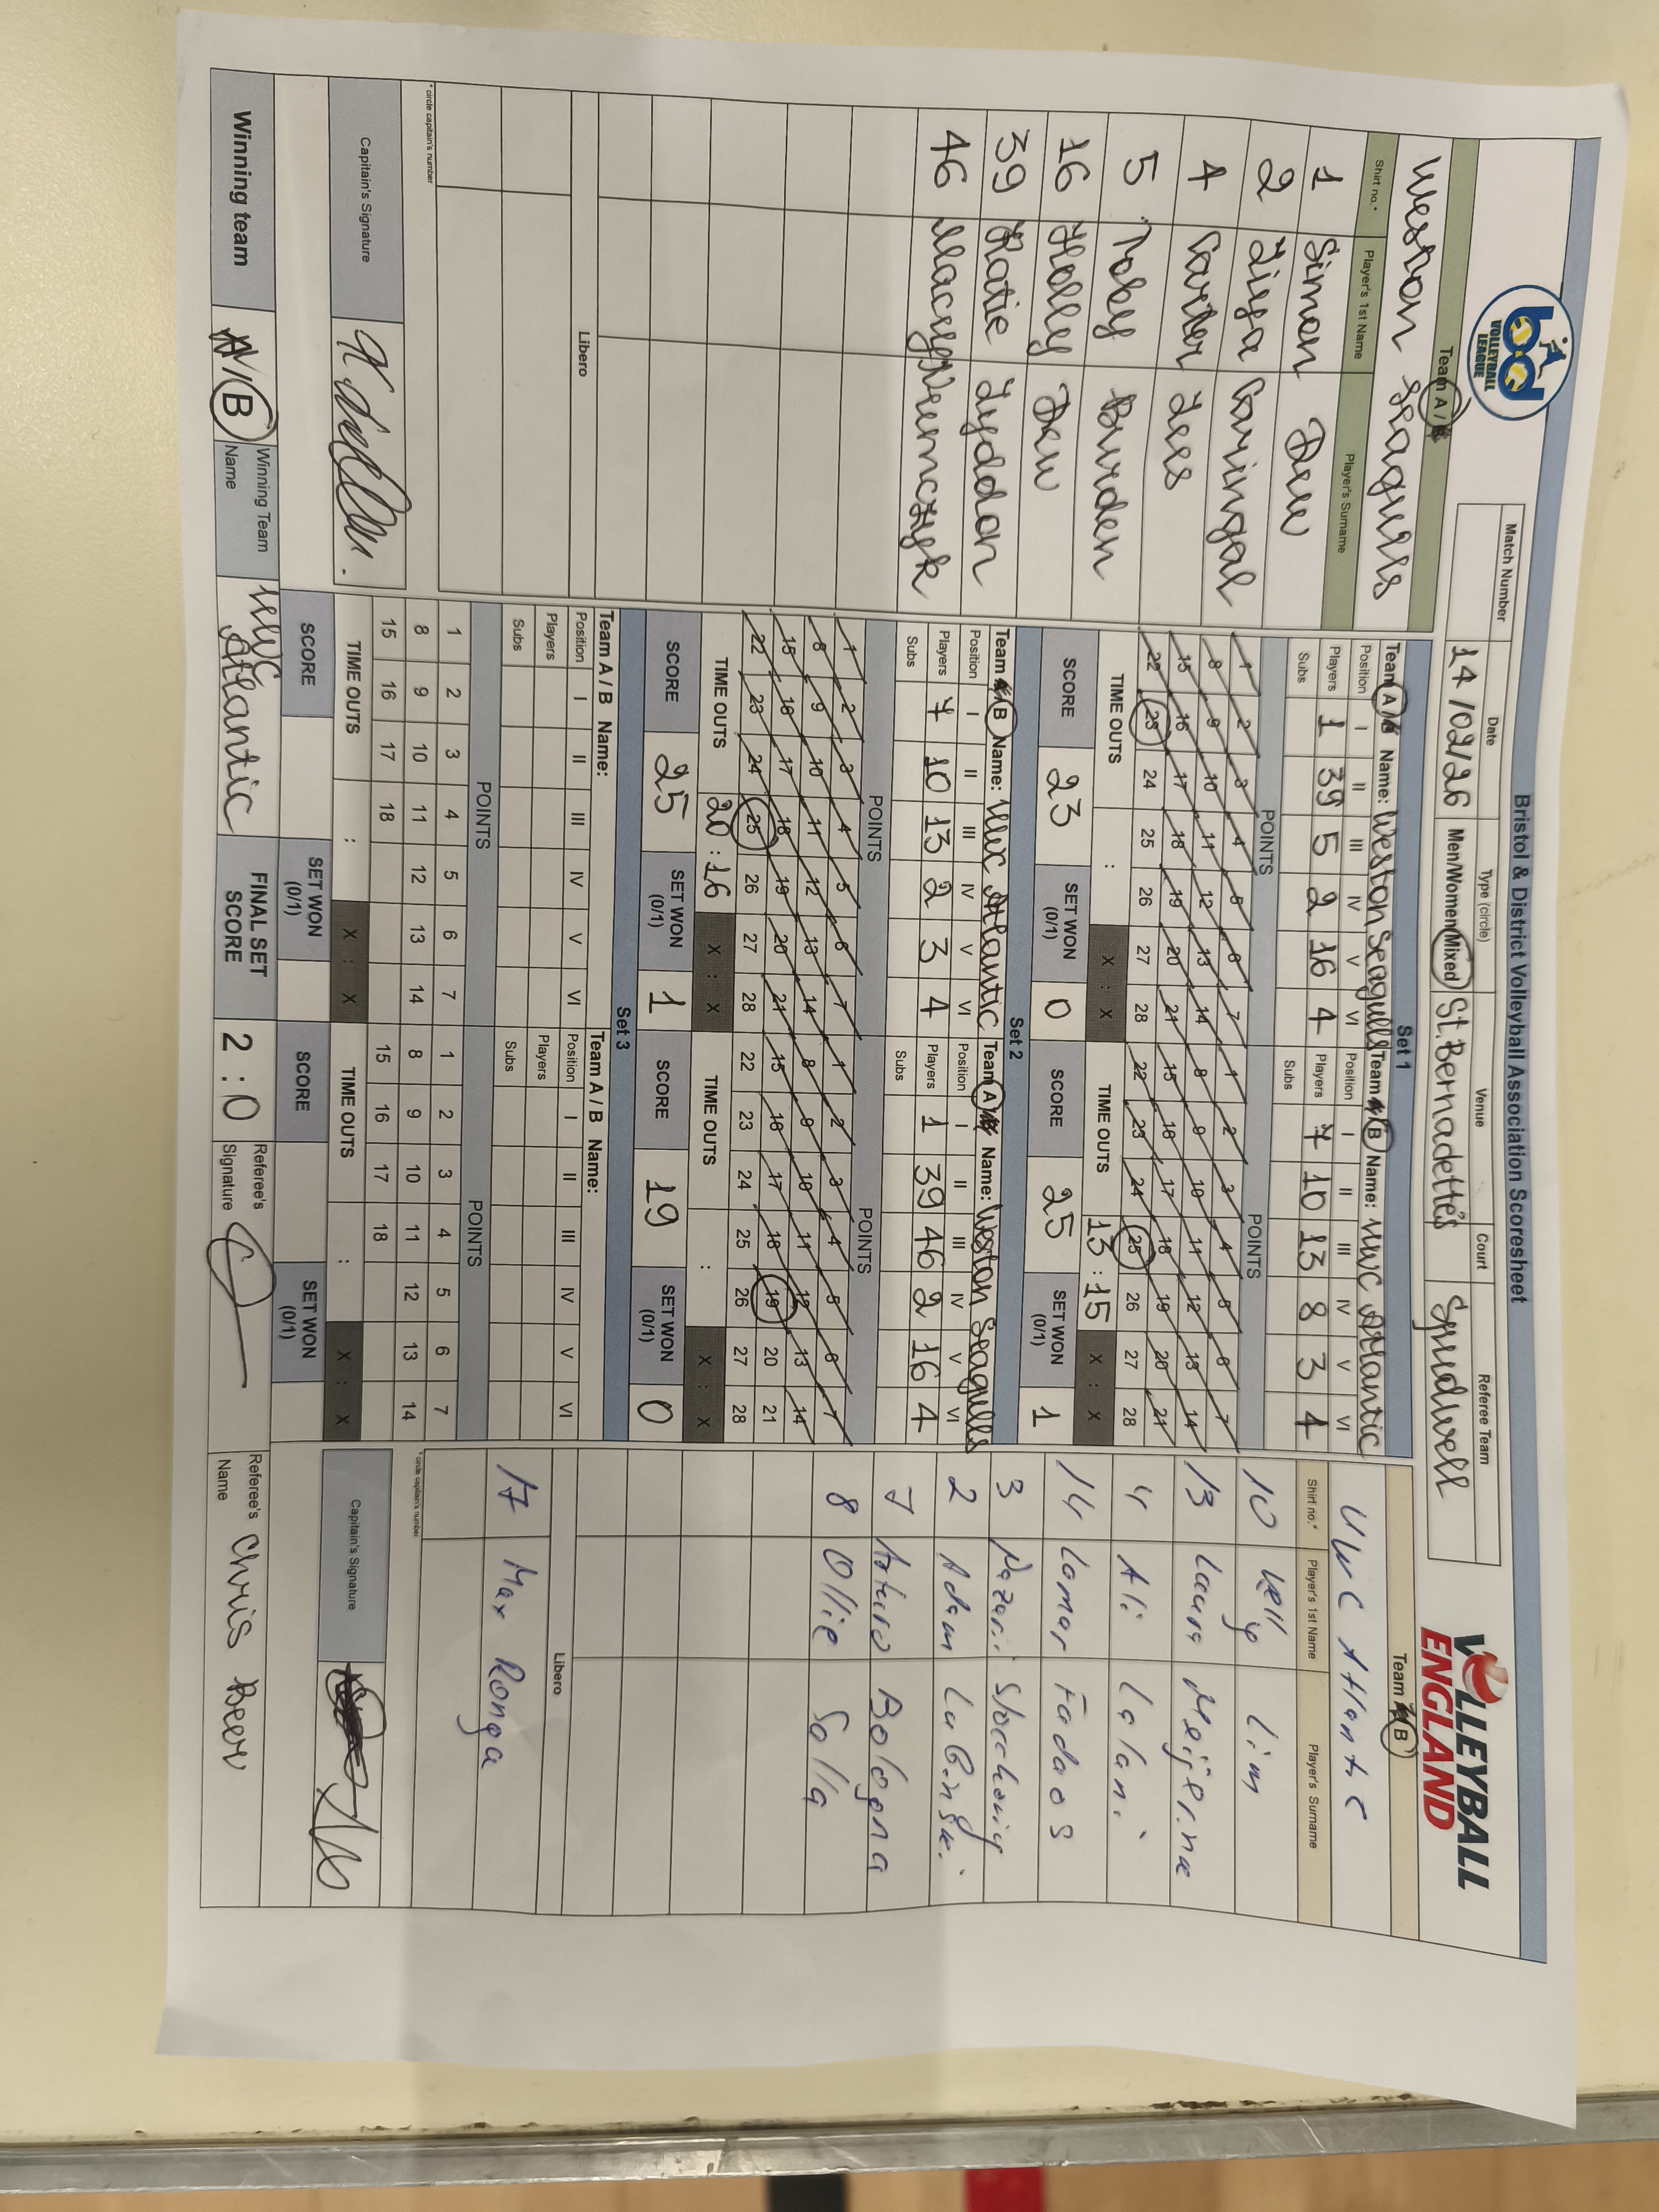 Bristol & District Volleyball Association Scoresheet
bd VOLLEYBALL LEAGUE
VOLLEYBALL ENGLAND
Match Number Date Type (circle) Venue Court Referee Team
14/02/26 Men/Women/Mixed St. Bernadette's Spudwell
Team A /
Weston Seagulls
Shirt no.* Player's 1st Name Player's Surname
1 Simon Dew
2 Ziya Caringal
4 Carter Lees
5 Toby Burden
16 Holly Dew
39 Katie Lyddon
46 Maccy Niemczyk
Libero
* circle captain's number
Capitain's Signature
Set 1
Team A / Name: Weston Seagulls
Position I II III IV V VI
Players 1 39 5 2 16 4
Subs
POINTS
1 2 3 4 5 6 7
8 9 10 11 12 13 14
15 16 17 18 19 20 21
22 23 24 25 26 27 28
TIME OUTS : X : X
SCORE 23 SET WON (0/1) 0
Team / B Name: UWC Atlantic
Position I II III IV V VI
Players 7 10 13 8 3 4
Subs
POINTS
1 2 3 4 5 6 7
8 9 10 11 12 13 14
15 16 17 18 19 20 21
22 23 24 25 26 27 28
TIME OUTS 13 : 15 X : X
SCORE 25 SET WON (0/1) 1
Set 2
Team / B Name: UWC Atlantic
Position I II III IV V VI
Players 7 10 13 2 3 4
Subs
POINTS
1 2 3 4 5 6 7
8 9 10 11 12 13 14
15 16 17 18 19 20 21
22 23 24 25 26 27 28
TIME OUTS 20 : 16 X : X
SCORE 25 SET WON (0/1) 1
Team A / Name: Weston Seagulls
Position I II III IV V VI
Players 1 39 46 2 16 4
Subs
POINTS
1 2 3 4 5 6 7
8 9 10 11 12 13 14
15 16 17 18 19 20 21
22 23 24 25 26 27 28
TIME OUTS : X : X
SCORE 19 SET WON (0/1) 0
Set 3
Team A / B Name:
Position I II III IV V VI
Players
Subs
POINTS
1 2 3 4 5 6 7
8 9 10 11 12 13 14
15 16 17 18
TIME OUTS : X : X
SCORE SET WON (0/1)
Team A / B Name:
Position I II III IV V VI
Players
Subs
POINTS
1 2 3 4 5 6 7
8 9 10 11 12 13 14
15 16 17 18
TIME OUTS : X : X
SCORE SET WON (0/1)
Team / B
UWC Atlantic
Shirt no.* Player's 1st Name Player's Surname
10 Kelly Lim
13 Laura
4 Ali Lalani
14 Lamar Fadaos
3 Nazarii
2 Adam
7 Arturo Bologna
8 Ollie Solla
Libero
17 Max Ronga
* circle captain's number
Capitain's Signature
Winning team A / B Winning Team Name UWC Atlantic FINAL SET SCORE 2 : 0 Referee's Signature Referee's Name Chris Beer